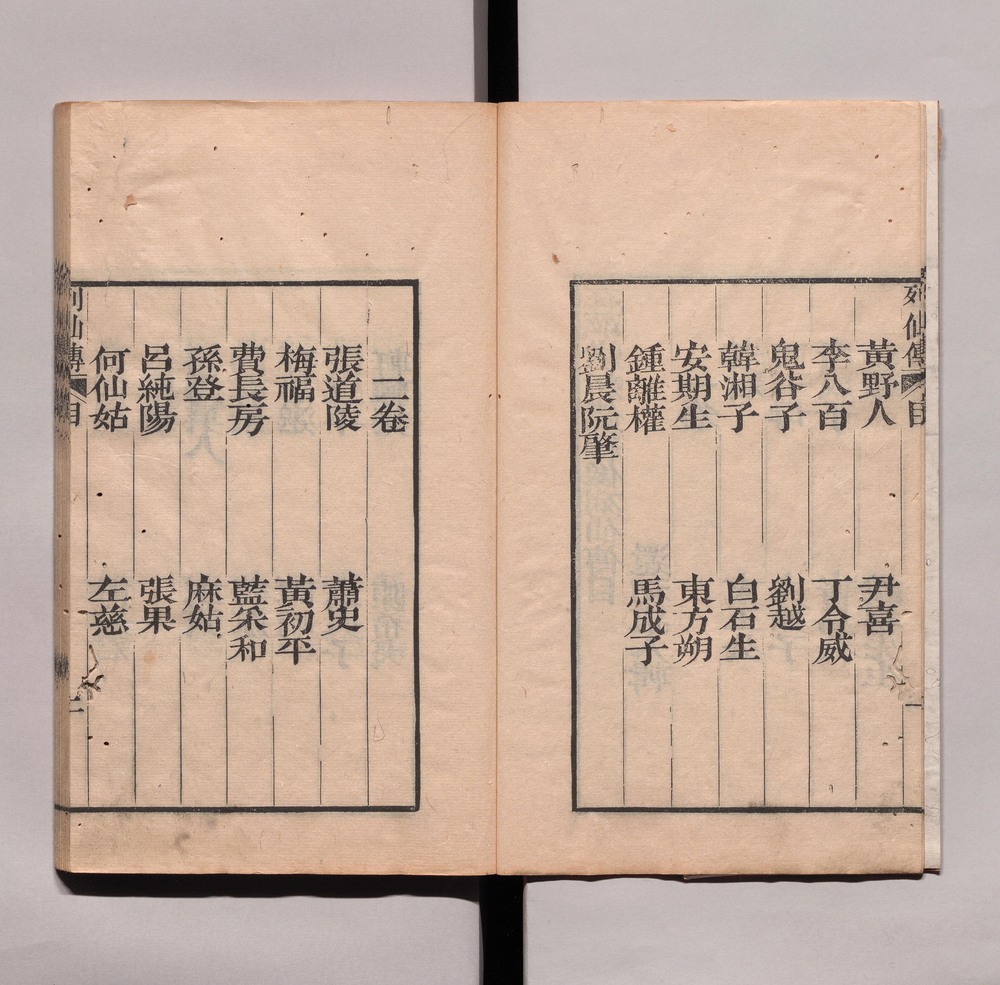 列仙傳 目 一
黃野人 尹喜
李八百 丁令威
鬼谷子 劉越
韓湘子 白石生
安期生 東方朔
鍾離權 馬成子
劉晨阮肇
二卷
張道陵 蕭史
梅福 黃初平
費長房 藍采和
孫登 麻姑
呂純陽 張果
何仙姑 左慈
列仙傳 目 二